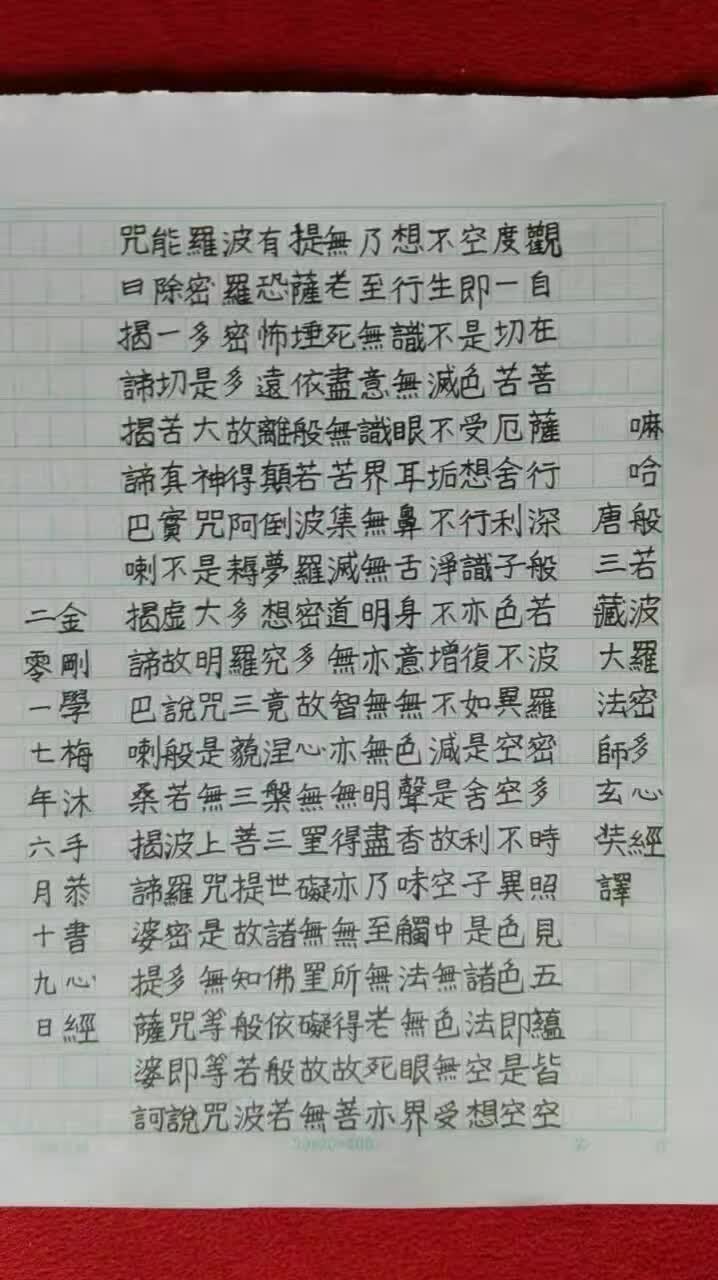 嘛哈般若波羅密多心經
唐三藏大法師玄奘譯
觀自在菩薩行深般若波羅密多時照見五蘊皆空
度一切苦厄舍利子色不異空空不異色色即是空
空即是色受想行識亦復如是舍利子是諸法空想
不生不滅不垢不淨不增不減是故空中無色無受
想行識無眼耳鼻舌身意無色聲香味觸法無眼界
乃至無意識界無無明亦無無明盡乃至無老死亦
無老死盡無苦集滅道無智亦無得亦無所得故菩
提薩埵依般若波羅密多故心無罣礙無罣礙故無
有恐怖遠離顛倒夢想究竟涅槃三世諸佛依般若
波羅密多故得阿耨多羅三藐三菩提故知般若波
羅密多是大神咒是大明咒是無上咒是無等等咒
能除一切苦真實不虛故說般若波羅密多咒即說
咒曰揭諦揭諦巴喇揭諦巴喇桑揭諦婆提薩婆訶
金剛學梅沐手恭書心經
二零一七年六月十九日